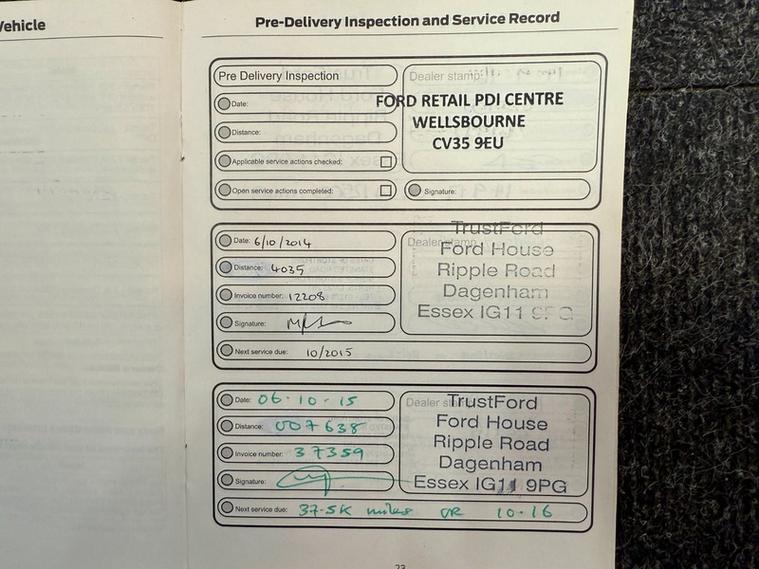 Vehicle
Pre-Delivery Inspection and Service Record
Pre Delivery Inspection
Dealer stamp:
Date:
FORD RETAIL PDI CENTRE
WELLSBOURNE
CV35 9EU
Distance:
Applicable service actions checked:
Open service actions completed:
Signature:
Date: 6/10/2014
Dealer stamp
TrustFord
Ford House
Ripple Road
Dagenham
Essex IG11 9PG
Distance: 4035
Invoice number: 12208
Signature:
Next service due: 10/2015
Date: 06-10-15
Dealer stamp
TrustFord
Ford House
Ripple Road
Dagenham
Essex IG11 9PG
Distance: 007638
Invoice number: 37359
Signature:
Next service due: 37.5K miles OR 10-16
23